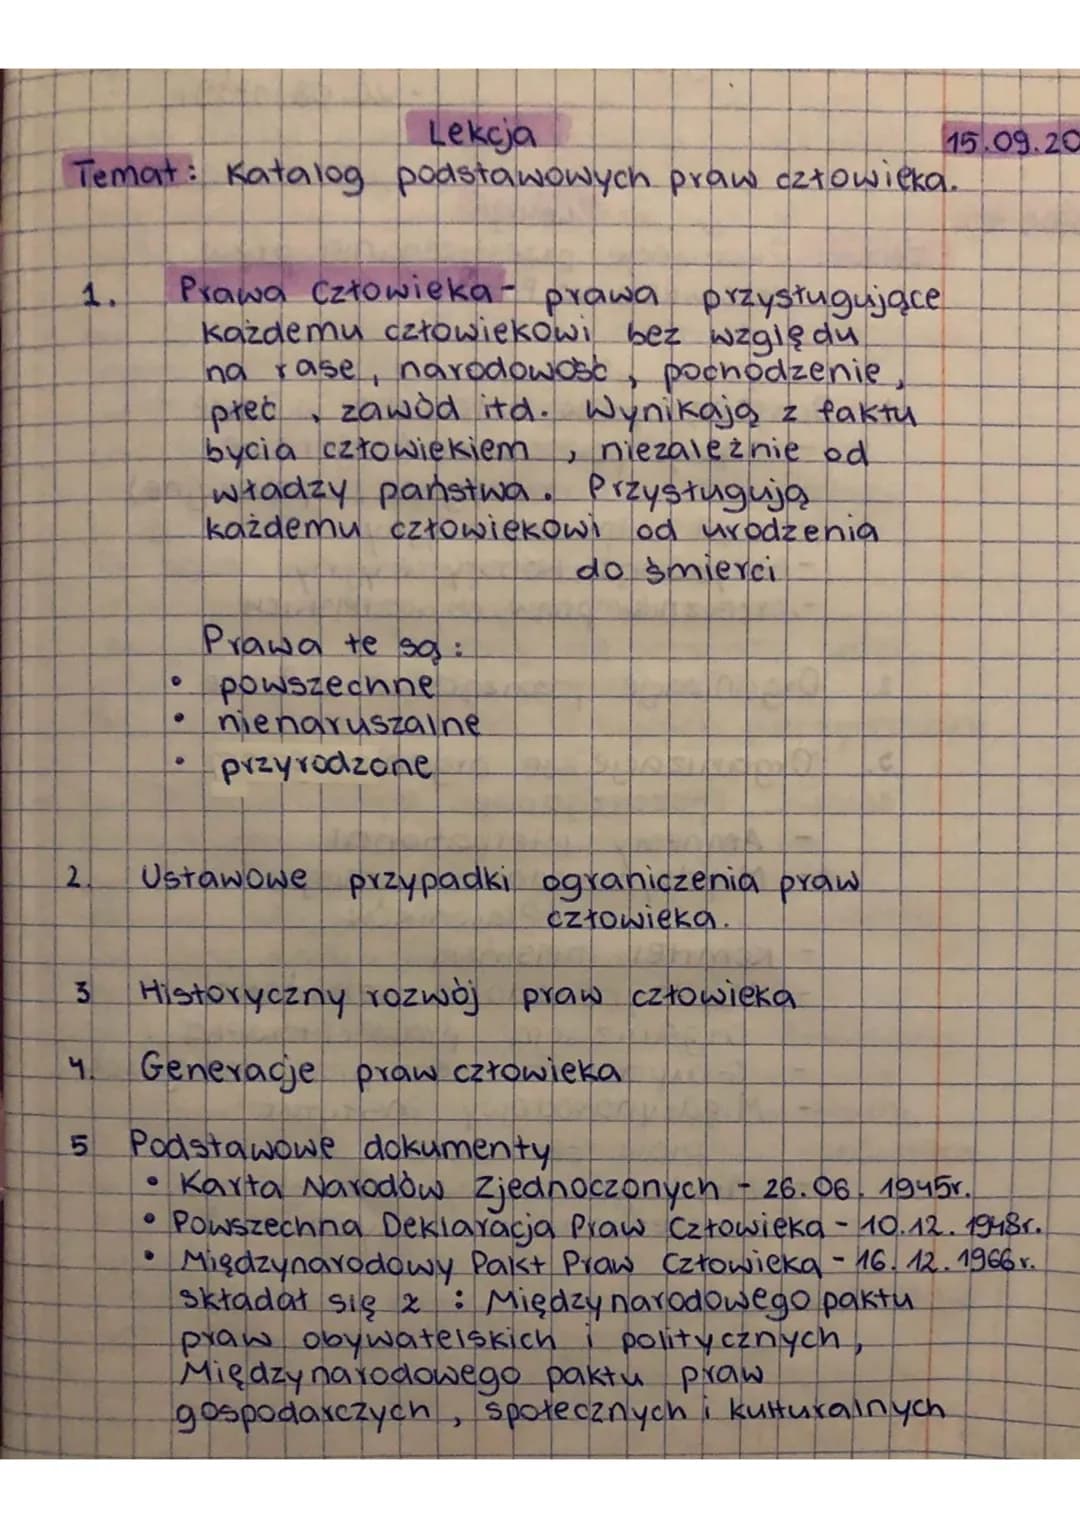 Lekcja
15.09.20
Temat: Katalog podstawowych praw człowieka.
1. Prawa Człowieka - prawa przysługujące
każdemu człowiekowi bez względu
na rasę, narodowość, pochodzenie,
płeć, zawód itd. Wynikają z faktu
bycia człowiekiem, niezależnie od
władzy państwa. Przysługują
każdemu człowiekowi od urodzenia
do śmierci
Prawa te są:
• powszechne
• nienaruszalne
• przyrodzone
2. Ustawowe przypadki ograniczenia praw
człowieka.
3 Historyczny rozwój praw człowieka
4. Generacje praw człowieka
5 Podstawowe dokumenty
• Karta Narodów Zjednoczonych - 26.06.1945r.
• Powszechna Deklaracja Praw Człowieka - 10.12.1948r.
• Międzynarodowy Pakt Praw Człowieka - 16.12.1966r.
składał się z : Międzynarodowego paktu
praw obywatelskich i politycznych,
Międzynarodowego paktu praw
gospodarczych, społecznych i kulturalnych